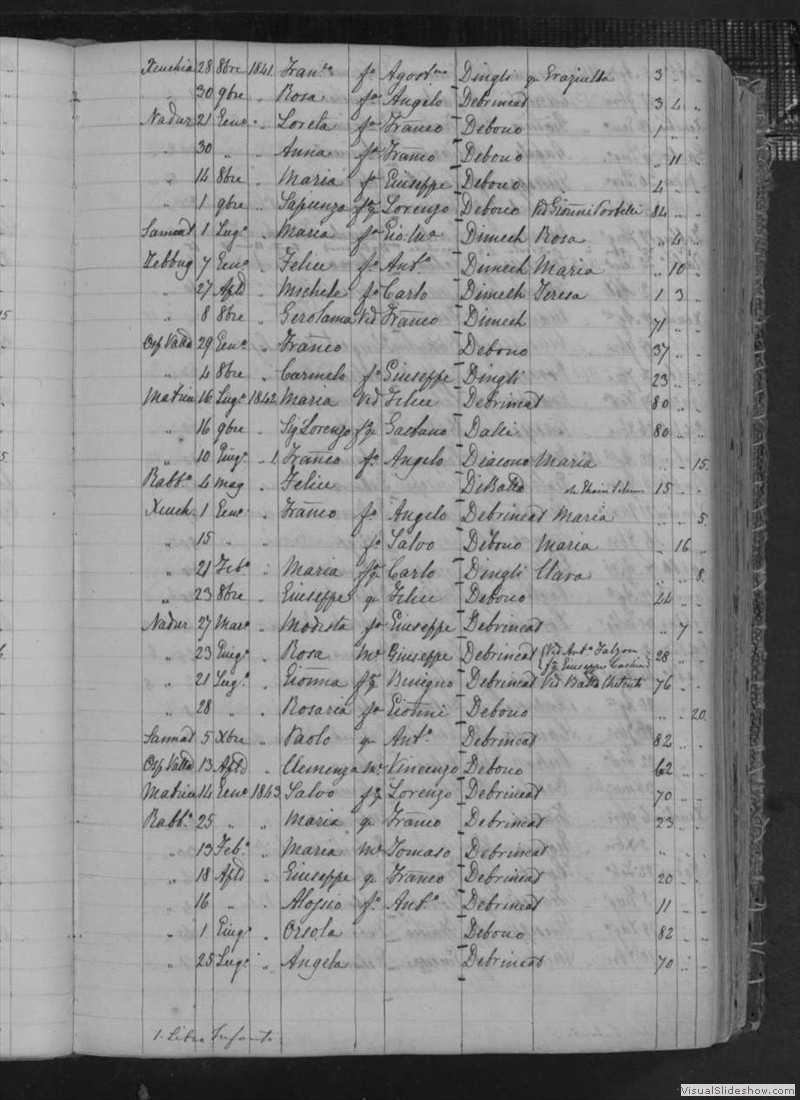 Xeuchia 28 8bre 1841 Fran.ca fa Agost.no Dingli q Graziulla 3 " "
" 30 9bre " Rosa fa Angelo Debrincat 3 4 "
Nadur 21 Gen.o " Loreta fa Franco Debono 1 " "
" 30 " " Anna fa Franco Debono " 11 "
" 14 8bre " Maria fa Giuseppe Debono 4 " "
" 1 9bre " Sapienza fq Lorenzo Debono Vid Gionni Portelli 84 " "
Sannat 1 Lug.o " Maria fa Gio.Ma Dimech Rosa " 4 "
Zebbug 7 Gen.o " Felice fo Ant.o Dimech Maria " 10 "
" 27 Apl.e " Michele fo Carlo Dimech Teresa 1 3 "
" 8 8bre " Gerolama Vid Franco Dimech 71 " "
Osp Valta 29 Gen.o " Franco Debono 37 " "
" 4 8bre " Carmelo fo Giuseppe Dingli 23 " "
Matrice 16 Lug.o 1842 Maria Vid Felice Debrincat 80 " "
" 16 9bre " Sig Lorenzo fq Gaetano Dalli 80 " "
" 10 Giug.o " 1. Franco fo Angelo Diacono Maria " " 15
Rabb.o 4 mag " Felice DeBatta 15 " "
Xeuch 1 Gen.o " Franco fo Angelo Debrincat Maria " " 5
" 15 " " fo Salvo Debono Maria " 16 "
" 21 Feb.o " Maria fq Carlo Dingli Clara " " 8
" 23 8bre " Giuseppe q Felice Debono 44 " "
Nadur 27 Mar.o " Modesta fa Giuseppe Debrincat " 7 "
" 23 Giug.o " Rosa Me Giuseppe Debrincat { Vid Ant.o Falzon 28 " "
fq Giuseppe
" 21 Lug.o " Gionna fq Benigno Debrincat Vid Batta Chetcuti 76 " "
" 28 " " Rosaria fa Gionni Debono " " 20
Sannat 5 Xbre " Paolo q Ant.o Debrincat 82 " "
Osp Valta 13 Apl.e " Clemenza Me Vincenzo Debono 62 " "
Matrice 14 Gen.o 1843 Salvo fq Lorenzo Debrincat 70 " "
Rabb.o 25 " " Maria q Franco Debrincat 23 " "
" 13 Feb.o " Maria Me Tomaso Debrincat " " "
" 18 Apl.e " Giuseppe q Franco Debrincat 20 " "
" 16 " " Aloysio fo Ant.o Debrincat 11 " "
" 1 Giug.o " Orsola Debono 82 " "
" 25 Lug.o " Angela Debrincat 70 " "
1. Libro Infanti
VisualSlideshow.com